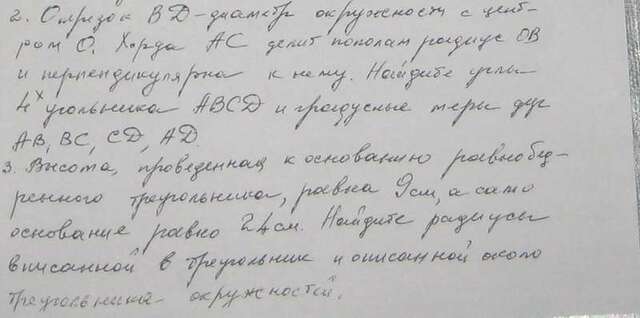 2. Отрезок BD-диаметр окружности с цент-
ром O. Хорда AC делит пополам радиус OB
и перпендикулярна к нему. Найдите углы
4х угольника ABCD и градусные меры дуг
AB, BC, CD, AD.
3. Высота, проведенная к основанию равнобед-
ренного треугольника, равна 9см, а само
основание равно 24см. Найдите радиусы
вписанной в треугольник и описанной около
треугольника окружностей.